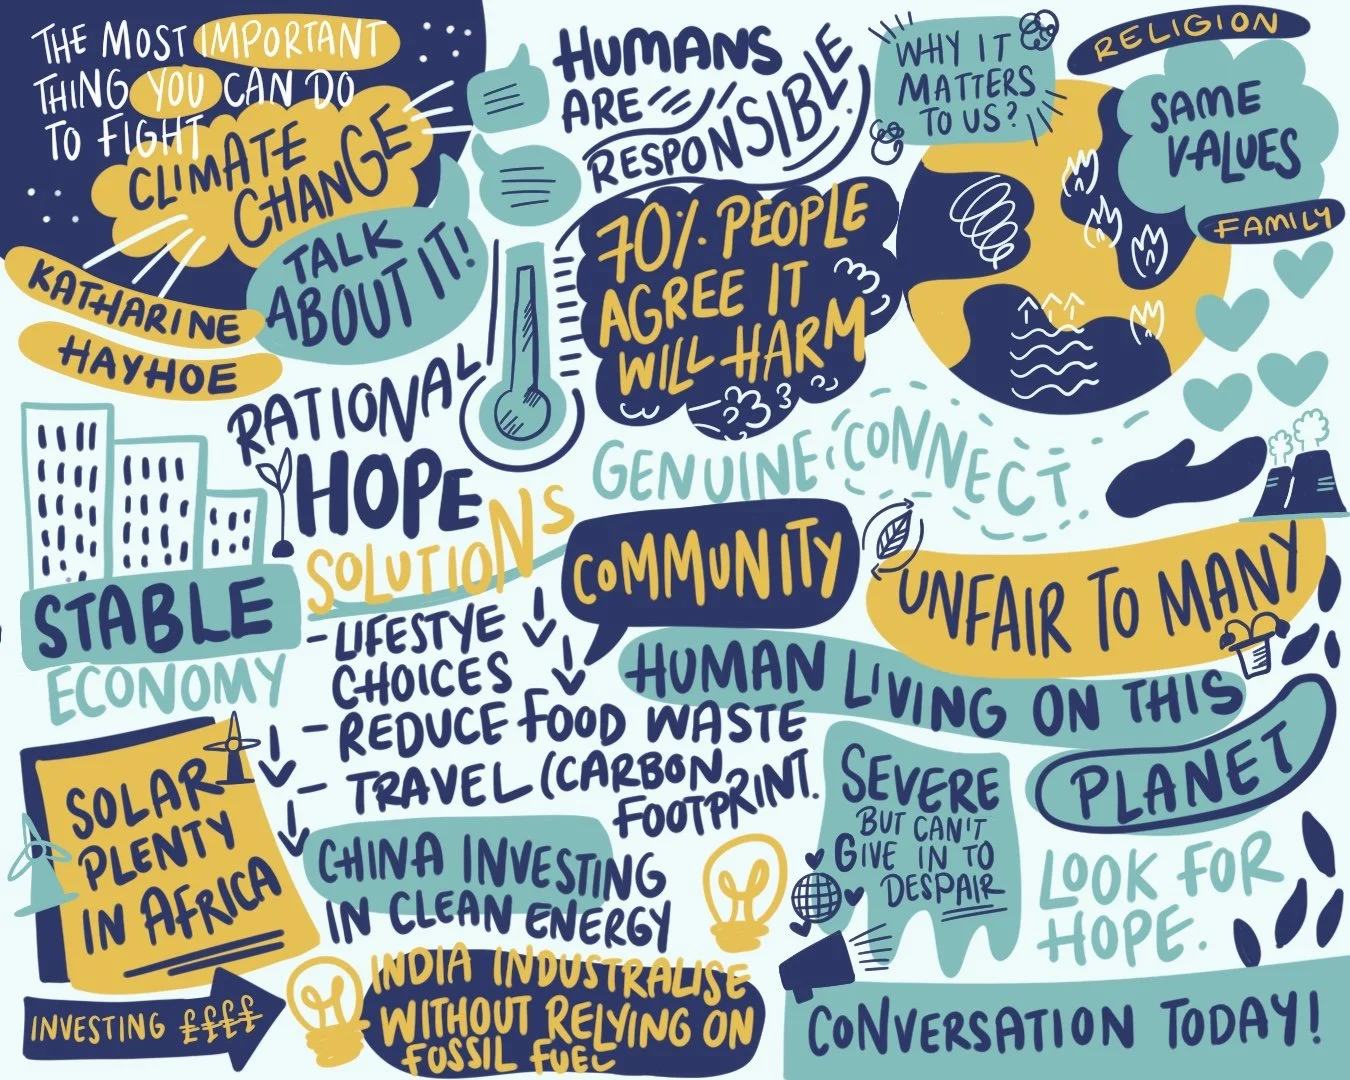 THE MOST IMPORTANT
THING YOU CAN DO
TO FIGHT
CLIMATE
CHANGE
TALK
ABOUT IT!
KATHARINE
HAYHOE
HUMANS
ARE
RESPONSIBLE
WHY IT
MATTERS
TO US?
RELIGION
SAME
VALUES
FAMILY
70% PEOPLE
AGREE IT
WILL HARM
RATIONAL
HOPE
SOLUTIONS
GENUINE CONNECT
COMMUNITY
UNFAIR TO MANY
STABLE
ECONOMY
- LIFESTYE
CHOICES
- REDUCE FOOD WASTE
- TRAVEL (CARBON
FOOTPRINT.
HUMAN LIVING ON THIS
PLANET
SOLAR
PLENTY
IN AFRICA
CHINA INVESTING
IN CLEAN ENERGY
SEVERE
BUT CAN'T
GIVE IN TO
DESPAIR
LOOK FOR
HOPE.
INVESTING ££££
INDIA INDUSTRALISE
WITHOUT RELYING ON
FOSSIL FUEL
CONVERSATION TODAY!